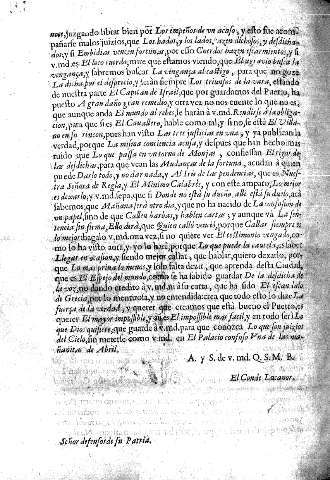 mor, juzgando librar bien por Los empeños de un acaso, y esto fue acom-
pañarle malos juizios, que Los hados, y los hados, hazen dichosos, y desdicha-
dos, y si Embidias vencen fortunas, por esso Cuerdos hazen escarmientos, y si
v. md. es El loco cuerdo, mire que estamos viendo, que El agravio busca la
vengança, y sabremos buscar La vengança al castigo, para que se goze
La dicha por el desprecio, y serán siempre Los triunfos de la vara, estando
de nuestra parte El Capitan de Israel, que por guardarnos del Puerto, ha
puesto A gran daño gran remedio, y otra vez no nos cuente lo que no es,
que aunque anda El mundo al rebès, le harán à v. md. Rendirse à la obliga-
cion, para que sirva El Cavallero, hable como tal, y sino, se està El Villa-
no en su rincon, pues han visto Las tres justicias en una, y ya publican la
verdad, porque La misma conciencia acusa, y despues que han hecho mas
ruido que Lo que passa en un torno de Monjas, confiessan El rigor de
las desdichas, para que vean las Mudanças de la fortuna, acudan à quien
puede Darlo todo, y no dar nada, y Al Iris de las pendencias, que es Nues-
tra Señora de Regla, y El Minimo Calabrès, y con este amparo, Lo mejor
es dexarlo, y v. md. sepa, que si Donde no està su dueño, allí està su duelo, acà
sabemos, que Mañana será otro dia, y que no ha nacido de La confusion de
un papel, sino de que Callen barbas, y hablen cartas, y aunque và La sen-
tencia sin firma, Ello dirà, que Quien calla venció, porque Callar siempre es
lo mejor, hagalo v. md. otra vez, si no quiere ver El castigo en tres vengança, co-
mo lo ha visto aqui, y yo lo haré, porque Lo que puede la cautela, es saber
Llegar en ocasion, y siendo mejor callar, que hablar, quiero dexarlo, por-
que Lo mas priva lo menos, y solo falta dezir, que aprenda desta Ciudad,
que es El Espejo del mundo, como se ha sabido guardar De la desdicha de
la voz, no dando credito à v. md. ni à su carta, que ha sido El esclavo
de Grecia, por lo mentirosa, y no entendida: crea que todo esto lo dize La
fuerça de la verdad, y quiera que creamos que està bueno el Puerto, es
querer El mayor impossible, y aun es El impossible mas facil, y en todo serà Lo
que Dios quisiere, que guarde à v. md. para que conozca Lo que son juizios
del Cielo, sin meterse como v. md. en El Palacio confuso Una de las ma-
ñanitas de Abril.
A. y S. de v. md. Q. S. M. B.
El Conde Lucanor.
Señor defensor de su Patria.